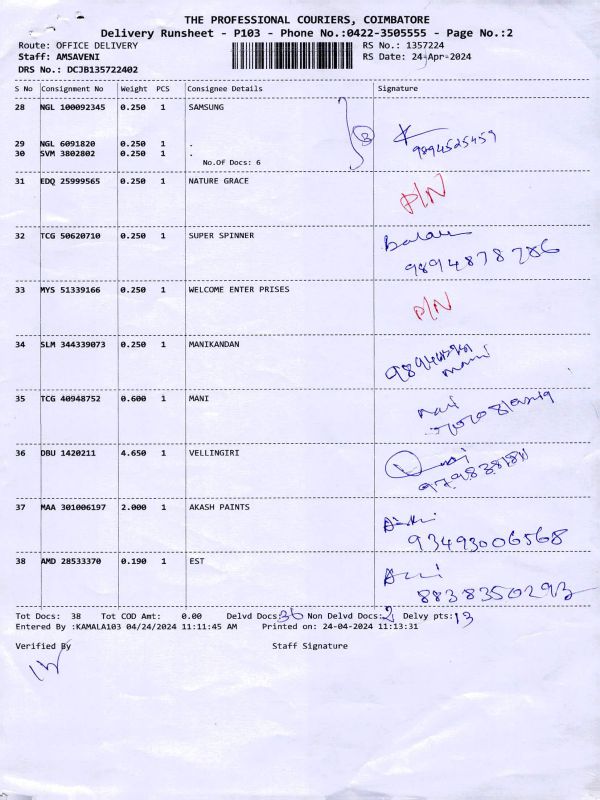 THE PROFESSIONAL COURIERS, COIMBATORE
Delivery Runsheet - P103 - Phone No.:0422-3505555 - Page No.:2
Route: OFFICE DELIVERY RS No.: 1357224
Staff: AMSAVENI RS Date: 24-Apr-2024
DRS No.: DCJB135722402
S No Consignment No Weight PCS Consignee Details Signature
28 NGL 100092345 0.250 1 SAMSUNG
29 NGL 6091820 0.250 1 .
30 SVM 3802802 0.250 1 .
3 9894525459
No.Of Docs: 6
31 EDQ 25999565 0.250 1 NATURE GRACE P/N
32 TCG 50620710 0.250 1 SUPER SPINNER
9894878786
33 MYS 51339166 0.250 1 WELCOME ENTER PRISES P/N
34 SLM 344339073 0.250 1 MANIKANDAN
Mani
35 TCG 40948752 0.600 1 MANI
36 DBU 1420211 4.650 1 VELLINGIRI
37 MAA 301006197 2.000 1 AKASH PAINTS
93493006568
38 AMD 28533370 0.190 1 EST
8838350293
Tot Docs: 38 Tot COD Amt: 0.00 Delvd Docs:36 Non Delvd Docs:2 Delvy pts:13
Entered By :KAMALA103 04/24/2024 11:11:45 AM Printed on: 24-04-2024 11:13:31
Verified By Staff Signature